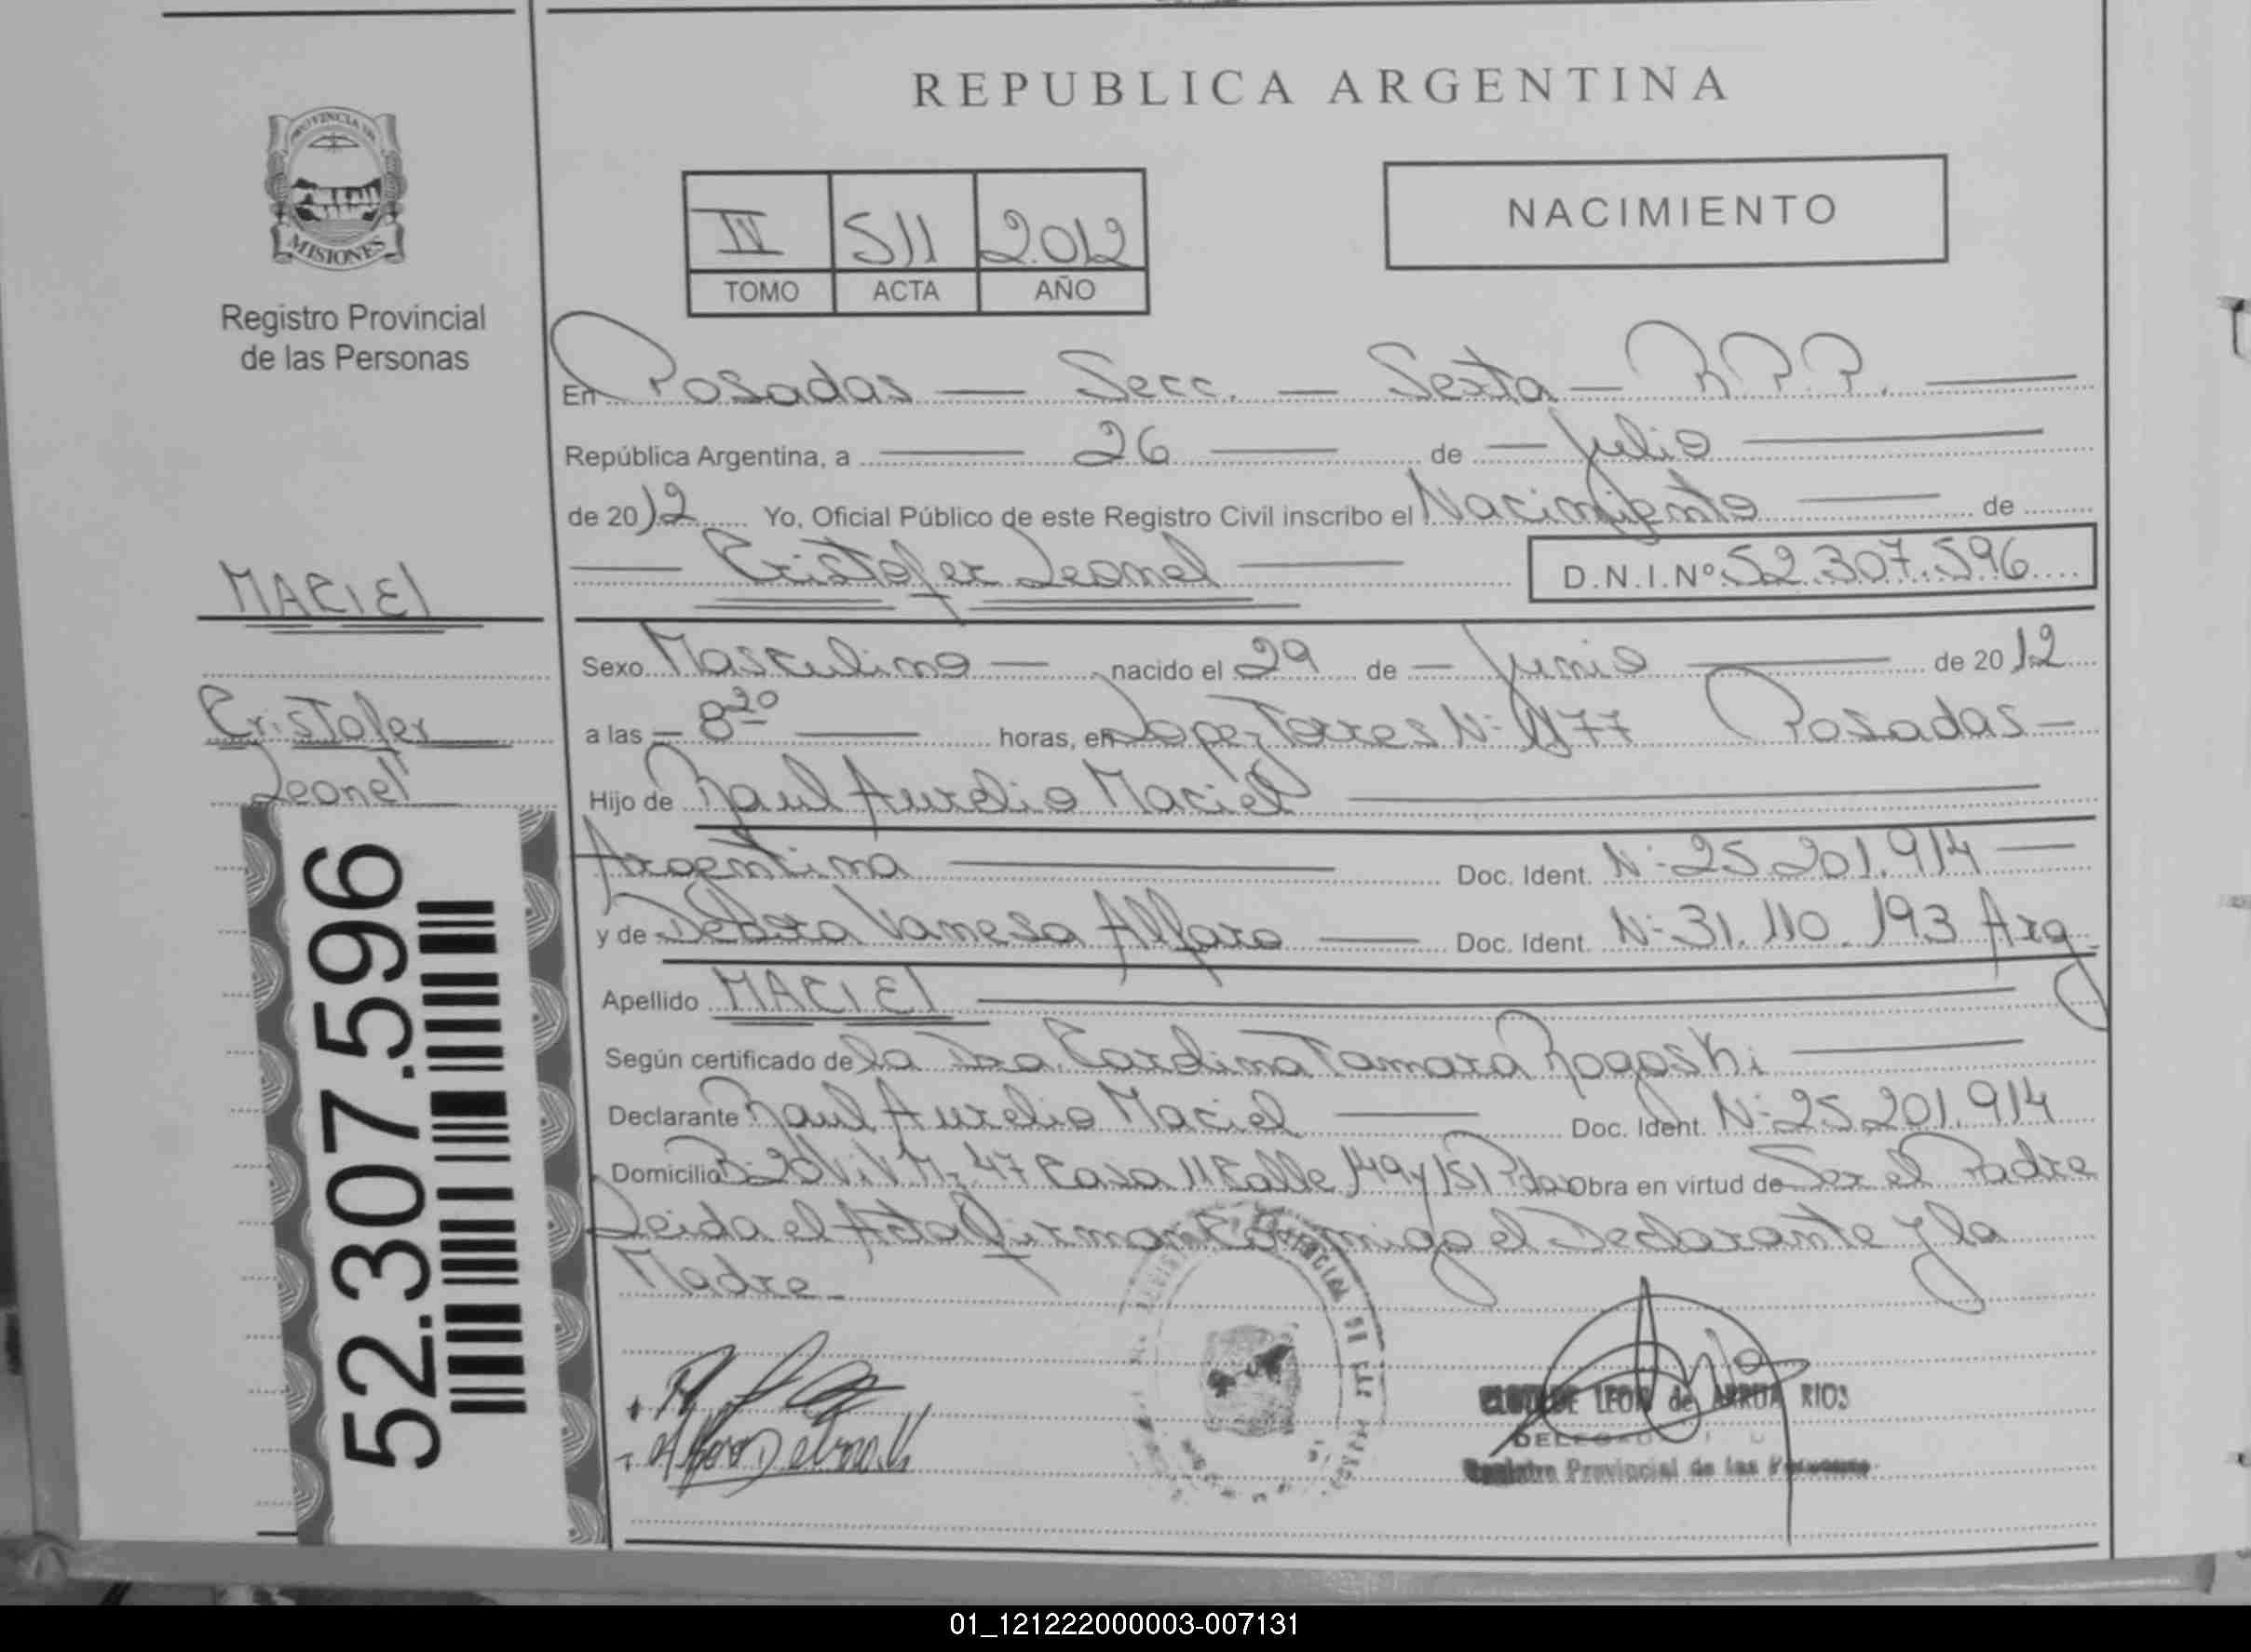 REPUBLICA ARGENTINA
PROVINCIA DE
MISIONES
Registro Provincial
de las Personas
IV 511 2012
TOMO ACTA AÑO
NACIMIENTO
En Posadas — Secc. — Sexta — R.P.P.
República Argentina, a 26 de Julio
de 2012 Yo, Oficial Público de este Registro Civil inscribo el Nacimiento de
Cristofer Leonel D.N.I.Nº 52.307.596
MACIEL
Cristofer
Leonel
52.307.596
Sexo Masculino nacido el 29 de Junio de 2012
a las 8 20 horas, en Lopez Torres Nº 1177 Posadas
Hijo de Raul Aurelio Maciel
Argentina Doc. Ident. Nº 25.201.914
y de Debora Vanesa Alfaro Doc. Ident. Nº 31.110.193 Arg
Apellido MACIEL
Según certificado de la Dra. Carolina Tamara Rogoski
Declarante Raul Aurelio Maciel Doc. Ident. Nº 25.201.914
Domicilio 47 Casa 11 Calle 149 y 151 Pdas Obra en virtud de Ser el Padre
Leida el Acta firman Conmigo el Declarante y la
Madre
LEON de ARRUA RIOS
Registro Provincial de las Personas
01_121222000003-007131